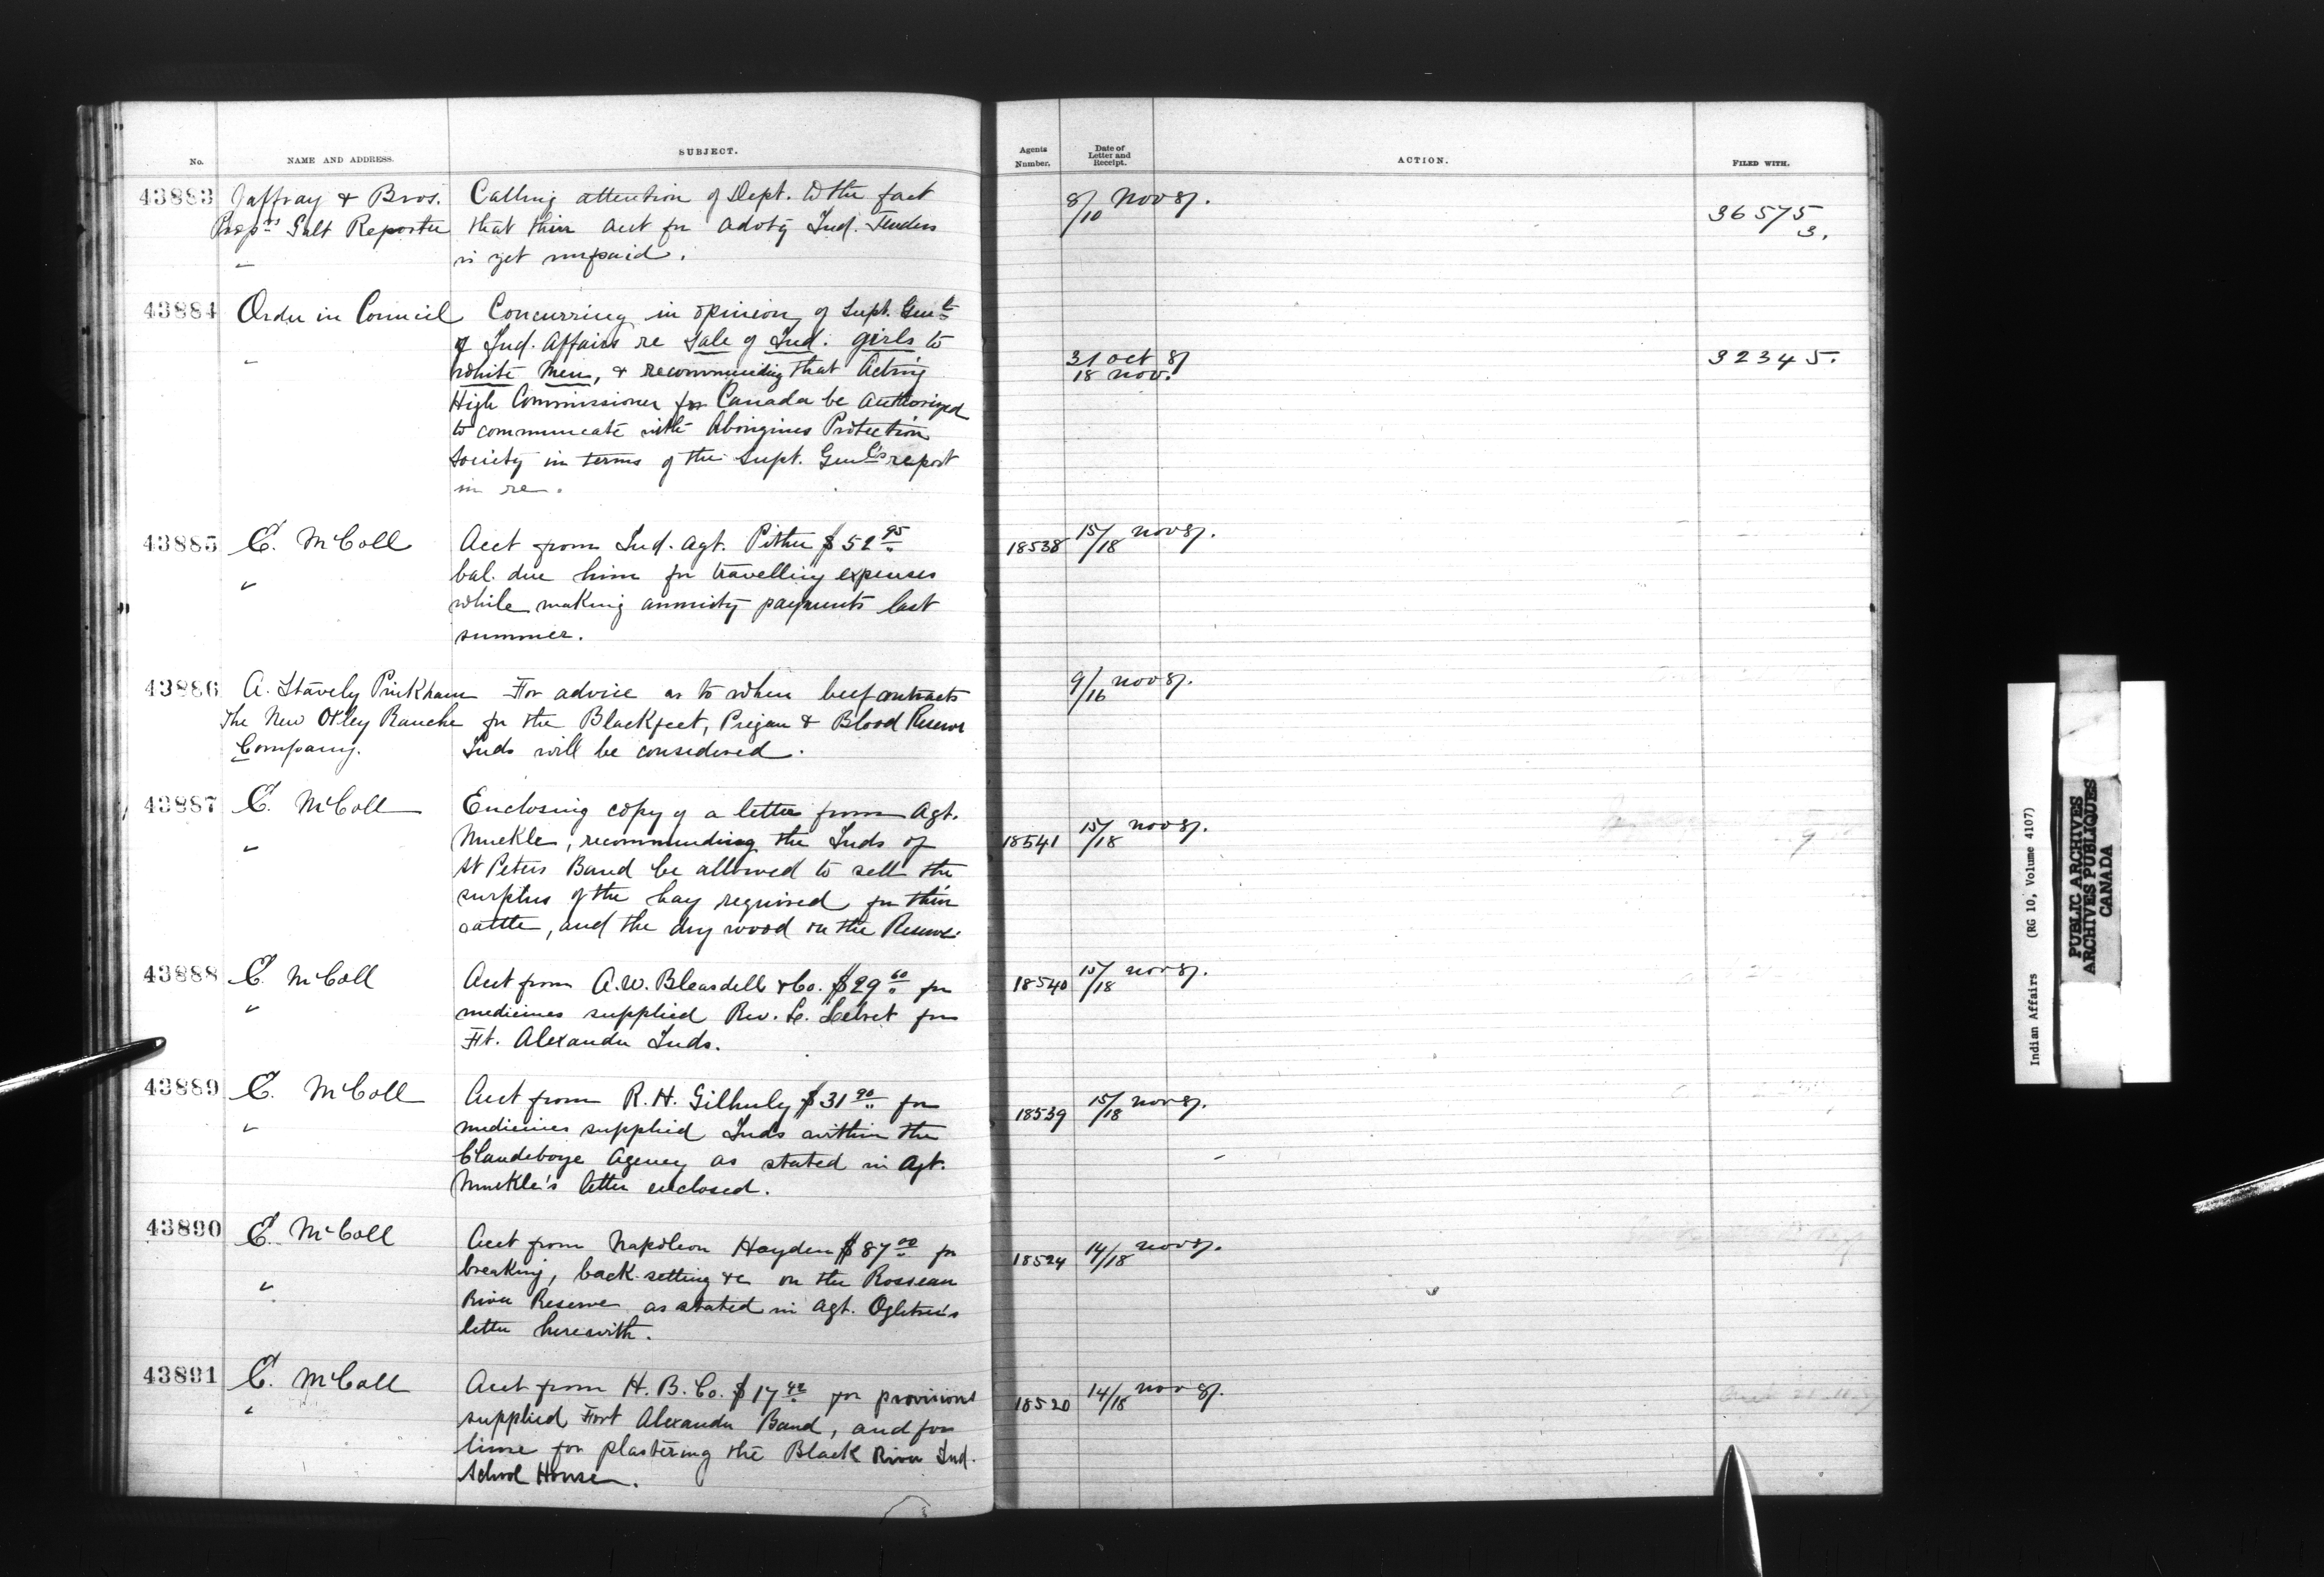 No. NAME AND ADDRESS. SUBJECT. Agents Number. Date of Letter and Receipt. ACTION. FILED WITH.
43883 Jaffray & Bros. Calling attention of Dept. to the fact 8/10 Nov 87.
Prop.rs Galt Reporter that their acct for advtg Ind. Tenders 36575
is yet unpaid. 3.
43884 Order in Council Concurring in opinion of Supt. Genl
of Ind. Affairs re Sale of Ind. girls to
white men, & recommending that Acting 31 Oct 87 32345.
18 Nov.
High Commissioner for Canada be authorized
to communicate with Aborigines Protection
Society in terms of the Supt. Genl's report
in re.
43885 E. McColl Acct from Ind. Agt. Pither $52.95 18538 15/18 Nov 87.
" bal. due him for travelling expenses
while making annuity payments last
summer.
43886 A. Stavely Pinkham For advice as to when beef contracts 9/16 Nov 87.
The New Oxley Ranche for the Blackfeet, Piegan & Blood Reserve
Company. Inds will be considered.
43887 E. McColl Enclosing copy of a letter from Agt.
" Muckle, recommending the Inds of 18541 15/18 Nov 87.
St Peters Band be allowed to sell the
surplus of the hay required for their
cattle, and the dry wood on the Reserve.
43888 E. McColl Acct from A.W. Bleasdell & Co. $29.60 for 18540 15/18 Nov 87.
" medicines supplied Rev. for
Ft. Alexander Inds.
43889 E. McColl Acct from R. H. Gilhuly $31.90 for 18539 15/18 Nov 87.
" medicines supplied Inds within the
Clandeboye Agency as stated in Agt.
Muckle's letter enclosed.
43890 E. McColl Acct from Napoleon Hayden $87.00 for 18524 14/18 Nov 87.
breaking, back-setting &c on the Rosseau
" River Reserve as stated in Agt. Ogletree's
letter herewith.
43891 E. McColl Acct from H. B. Co. $17.42 for provisions 18520 14/18 Nov 87.
" supplied Fort Alexander Band, and for
lime for plastering the Black River Ind.
School House.
Indian Affairs (RG 10, Volume 4107)
PUBLIC ARCHIVES
ARCHIVES PUBLIQUES
CANADA